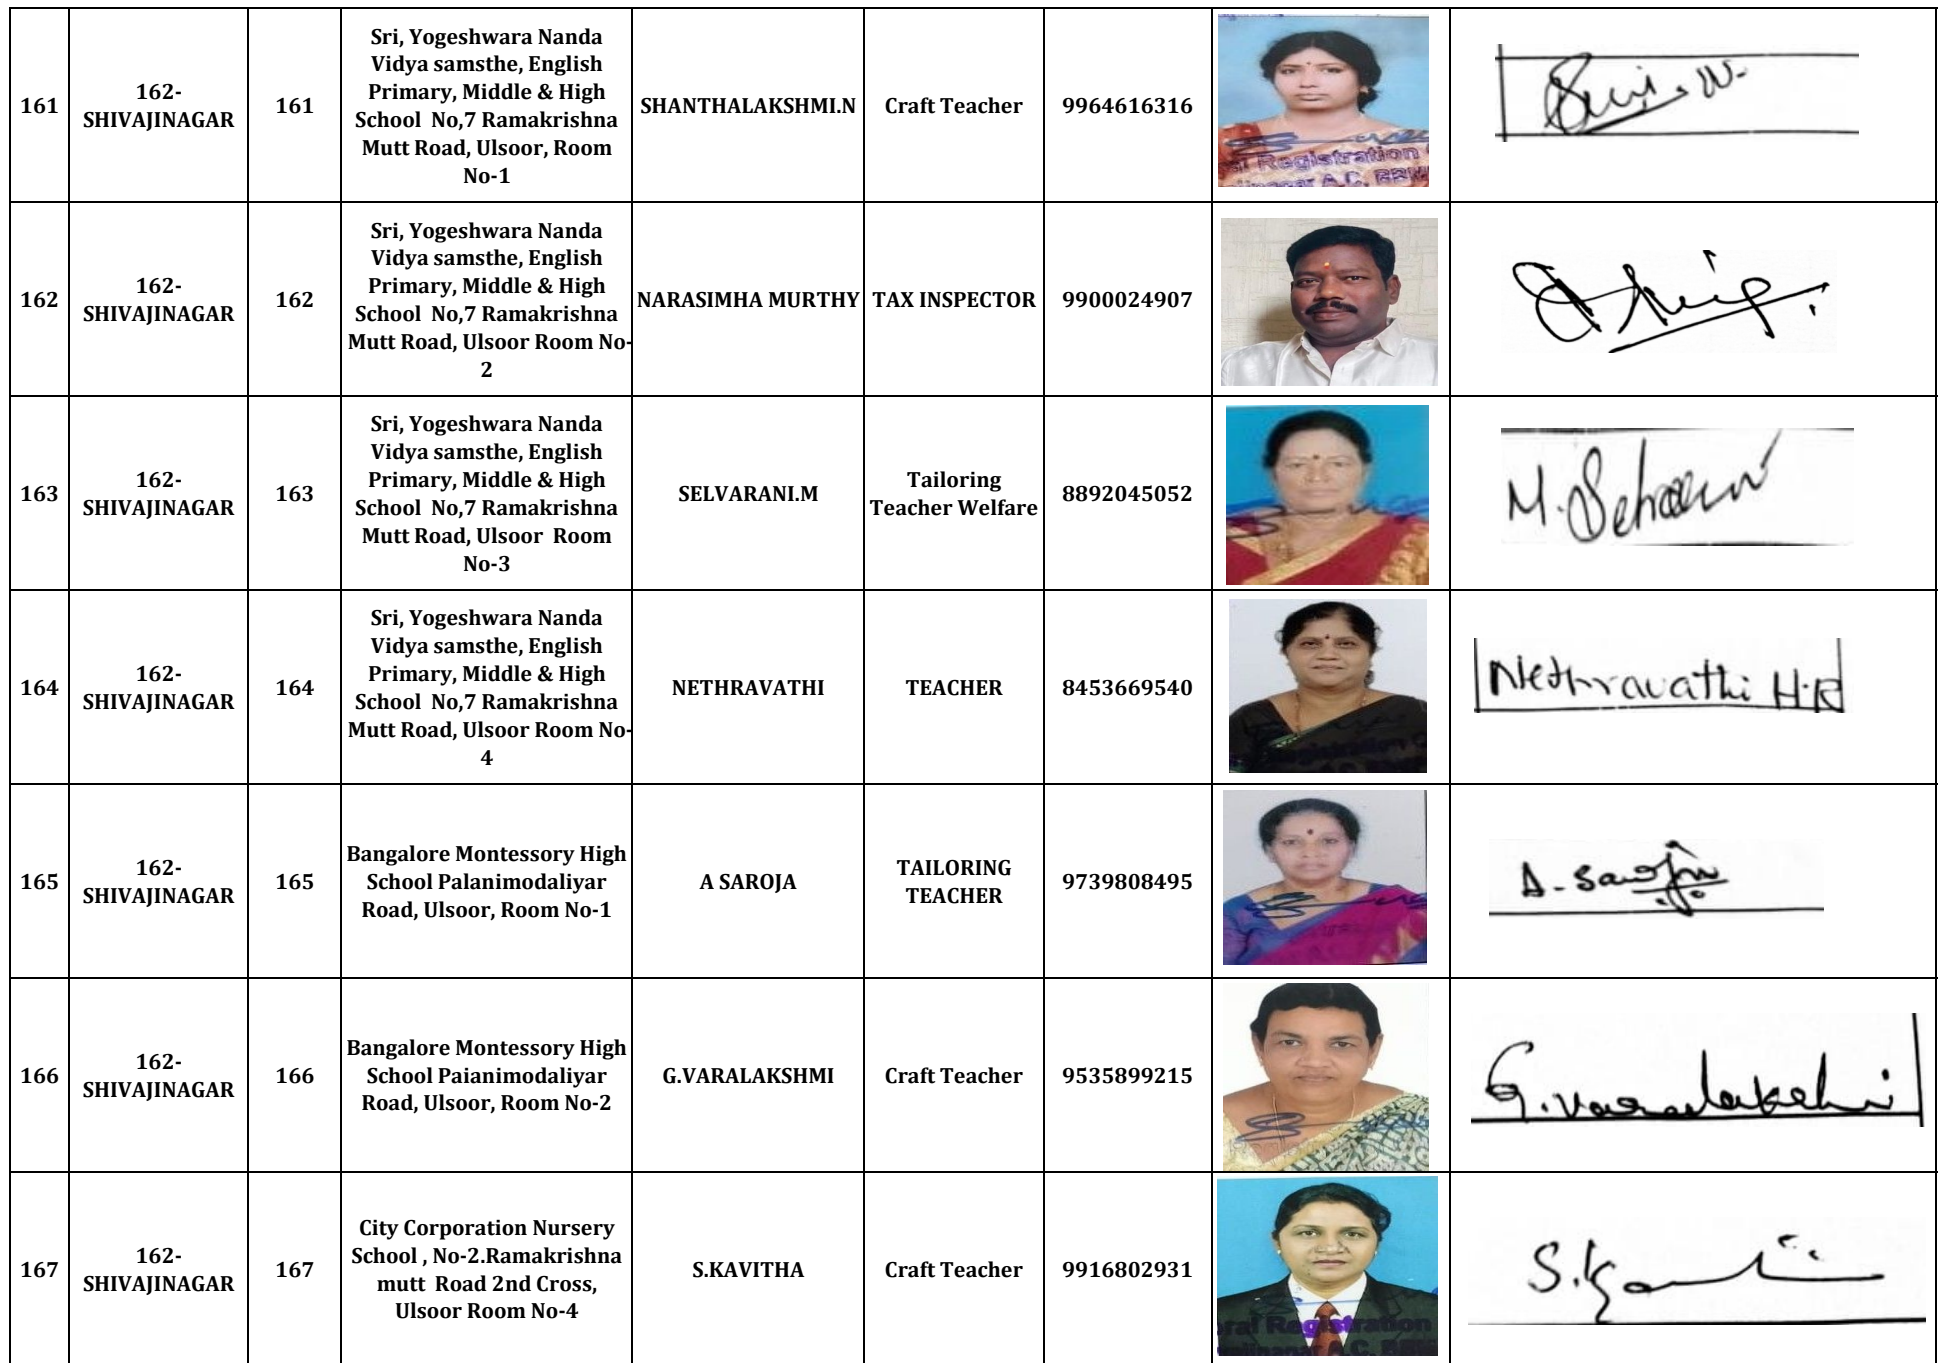 161
162-
SHIVAJINAGAR
161
Sri, Yogeshwara Nanda
Vidya samsthe, English
Primary, Middle & High
School No,7 Ramakrishna
Mutt Road, Ulsoor, Room
No-1
SHANTHALAKSHMI.N
Craft Teacher
9964616316
Registration
A.C.
162
162-
SHIVAJINAGAR
162
Sri, Yogeshwara Nanda
Vidya samsthe, English
Primary, Middle & High
School No,7 Ramakrishna
Mutt Road, Ulsoor Room No-
2
NARASIMHA MURTHY
TAX INSPECTOR
9900024907
163
162-
SHIVAJINAGAR
163
Sri, Yogeshwara Nanda
Vidya samsthe, English
Primary, Middle & High
School No,7 Ramakrishna
Mutt Road, Ulsoor Room
No-3
SELVARANI.M
Tailoring
Teacher Welfare
8892045052
164
162-
SHIVAJINAGAR
164
Sri, Yogeshwara Nanda
Vidya samsthe, English
Primary, Middle & High
School No,7 Ramakrishna
Mutt Road, Ulsoor Room No-
4
NETHRAVATHI
TEACHER
8453669540
Registration
Nethravathi H.R
165
162-
SHIVAJINAGAR
165
Bangalore Montessory High
School Palanimodaliyar
Road, Ulsoor, Room No-1
A SAROJA
TAILORING
TEACHER
9739808495
A. Saroja
166
162-
SHIVAJINAGAR
166
Bangalore Montessory High
School Paianimodaliyar
Road, Ulsoor, Room No-2
G.VARALAKSHMI
Craft Teacher
9535899215
G.Varalakshmi
167
162-
SHIVAJINAGAR
167
City Corporation Nursery
School , No-2.Ramakrishna
mutt Road 2nd Cross,
Ulsoor Room No-4
S.KAVITHA
Craft Teacher
9916802931
Registration
A.C.